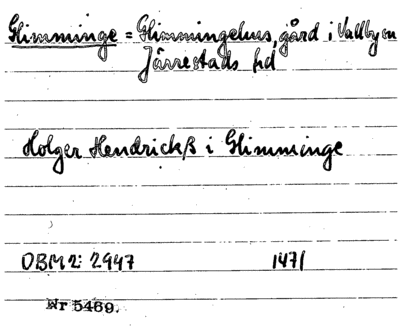 Glimminge = Glimmingehus, gård i Vallby sn
Järrestads hd
Holger Hendrickß i Glimminge
DBM 2: 2947 1471
Nr 5469.